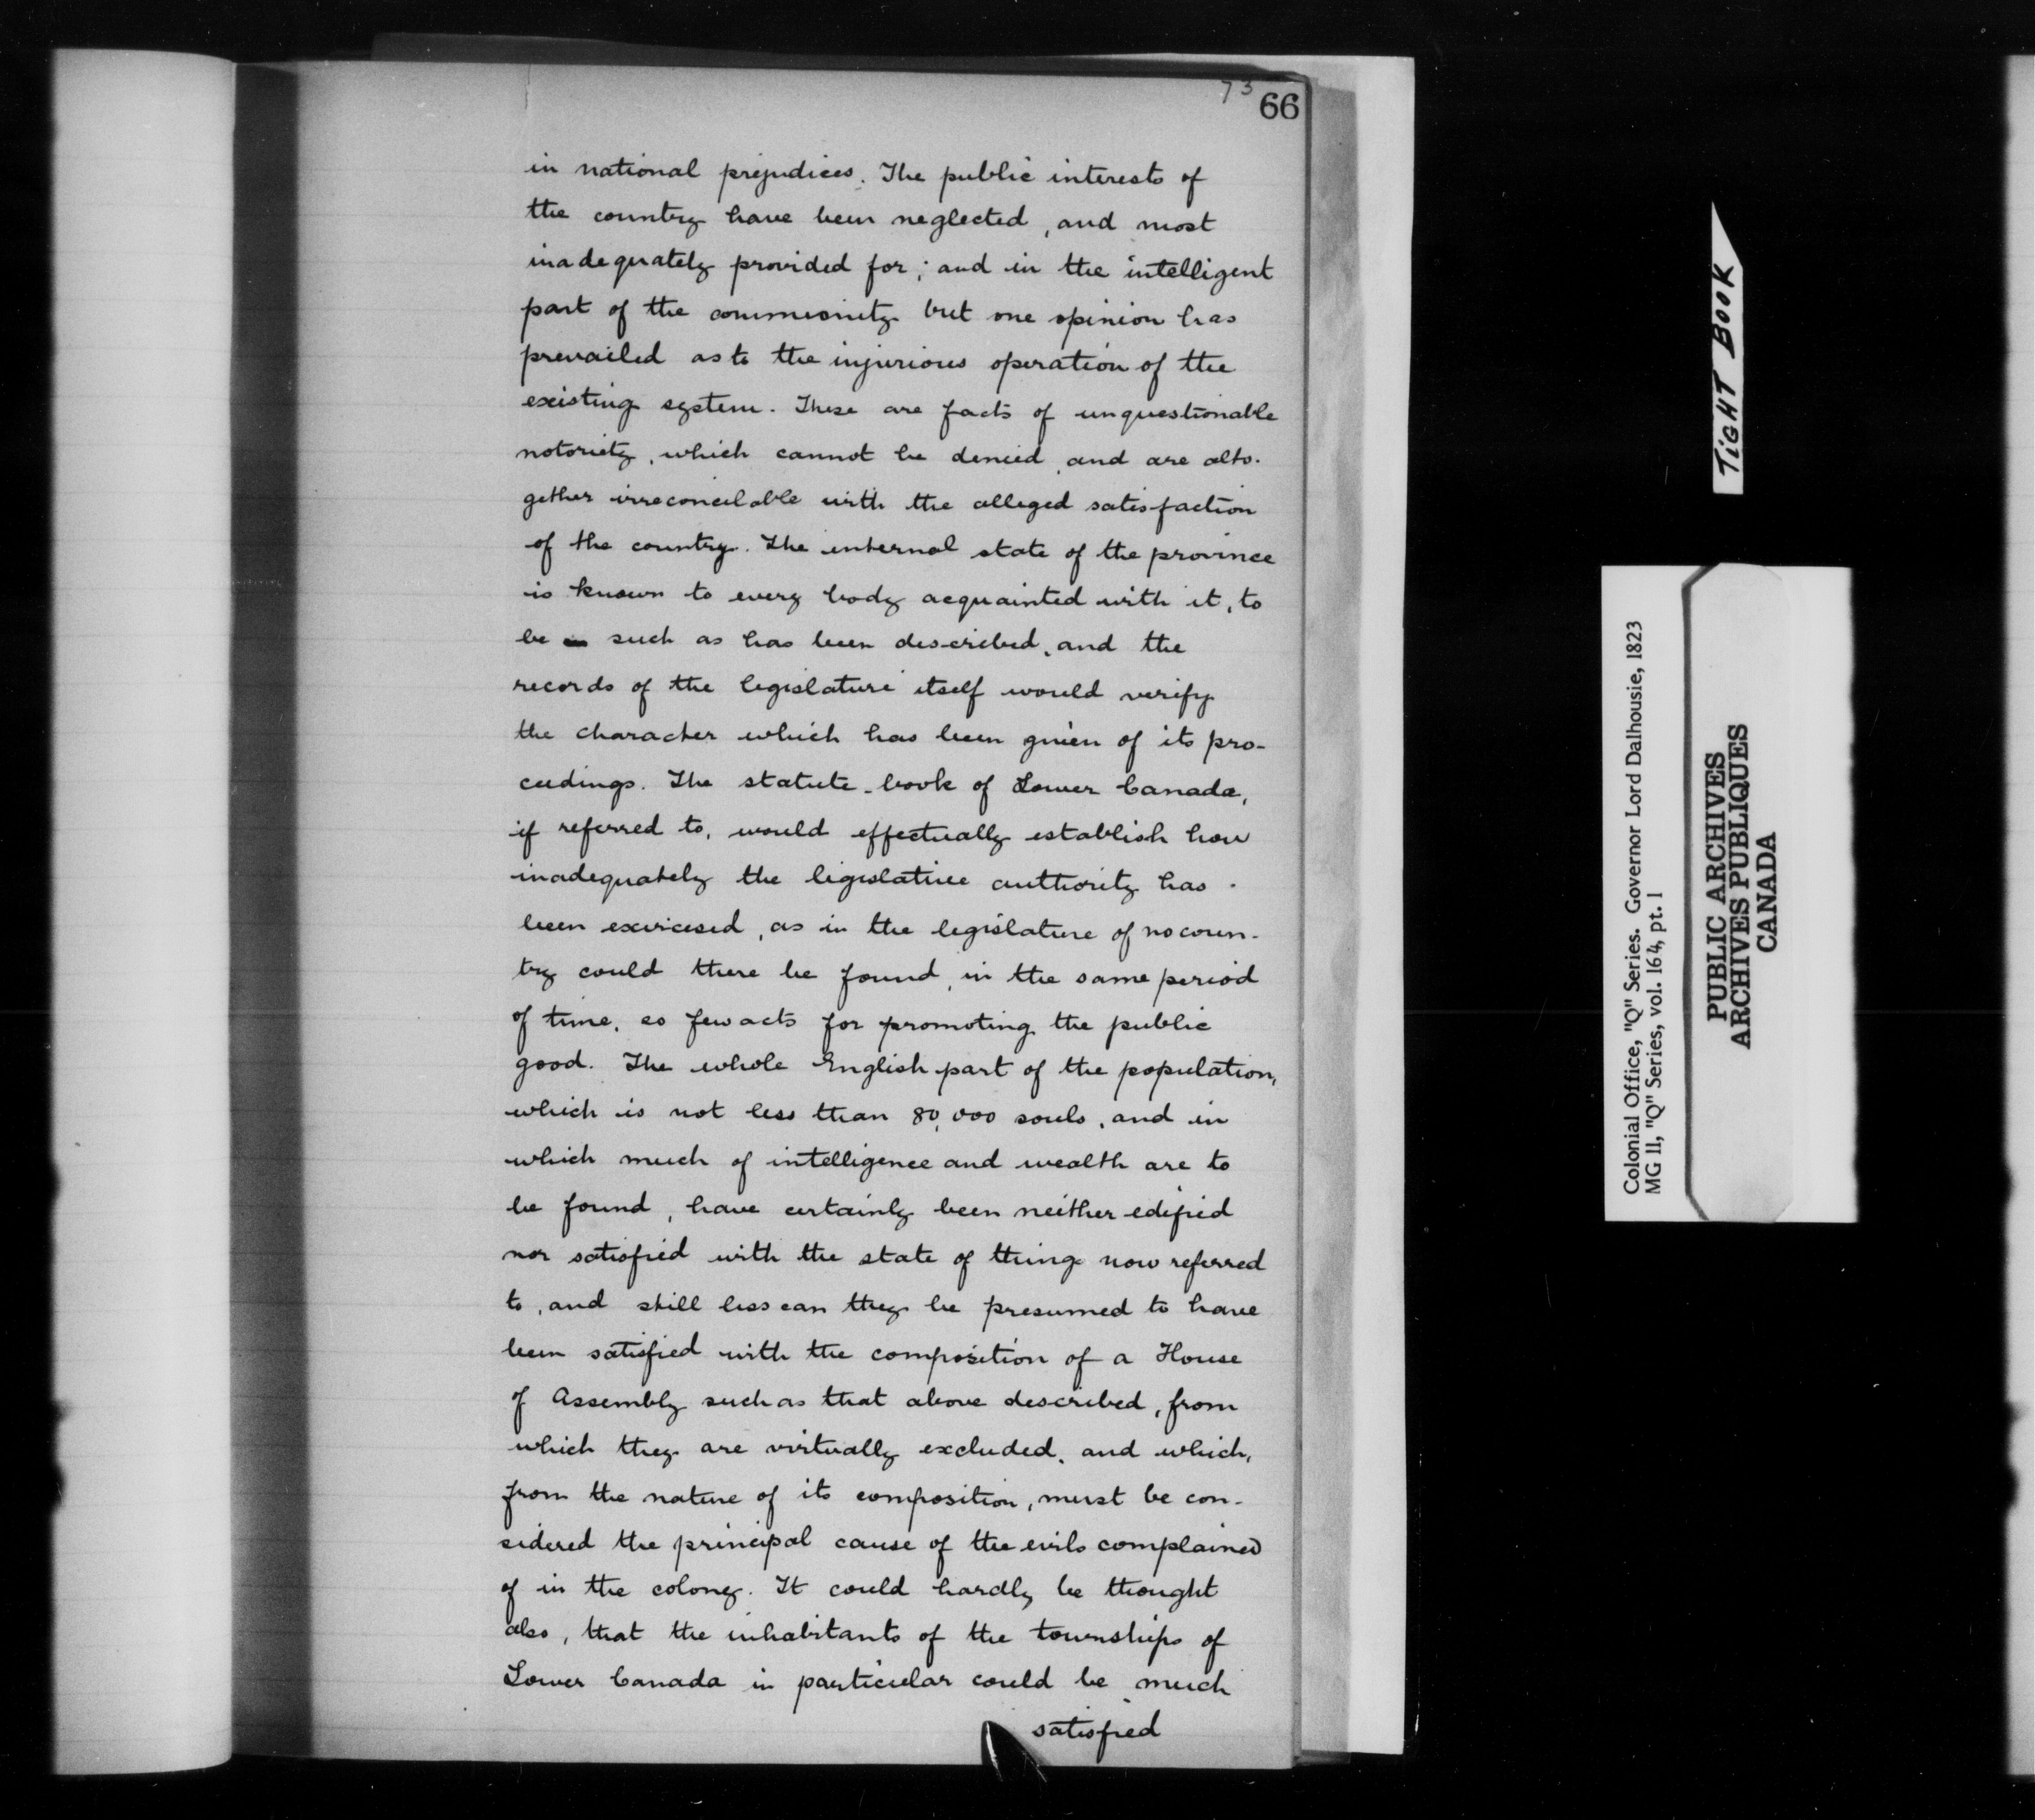 73
66
in national prejudices. The public interests of
the country have been neglected, and most
inadequately provided for; and in the intelligent
part of the community but one opinion has
prevailed as to the injurious operation of the
existing system. These are facts of unquestionable
notoriety, which cannot be denied, and are alto-
gether irreconcilable with the alleged satisfaction
of the country. The internal state of the province
is known to every body acquainted with it, to
be such as has been described, and the
records of the legislature itself would verify
the character which has been given of its pro-
ceedings. The statute-book of Lower Canada,
if referred to, would effectually establish how
inadequately the legislative authority has
been exercised, as in the legislature of no coun-
try could there be found, in the same period
of time, so few acts for promoting the public
good. The whole English part of the population,
which is not less than 80,000 souls, and in
which much of intelligence and wealth are to
be found, have certainly been neither edified
nor satisfied with the state of things now referred
to, and still less can they be presumed to have
been satisfied with the composition of a House
of Assembly such as that above described, from
which they are virtually excluded, and which,
from the nature of its composition, must be con-
sidered the principal cause of the evils complained
of in the colony. It could hardly be thought
also, that the inhabitants of the townships of
Lower Canada in particular could be much
satisfied
TIGHT BOOK
Colonial Office, "Q" Series. Governor Lord Dalhousie, 1823
MG 11, "Q" Series, vol. 164, pt. 1
PUBLIC ARCHIVES
ARCHIVES PUBLIQUES
CANADA